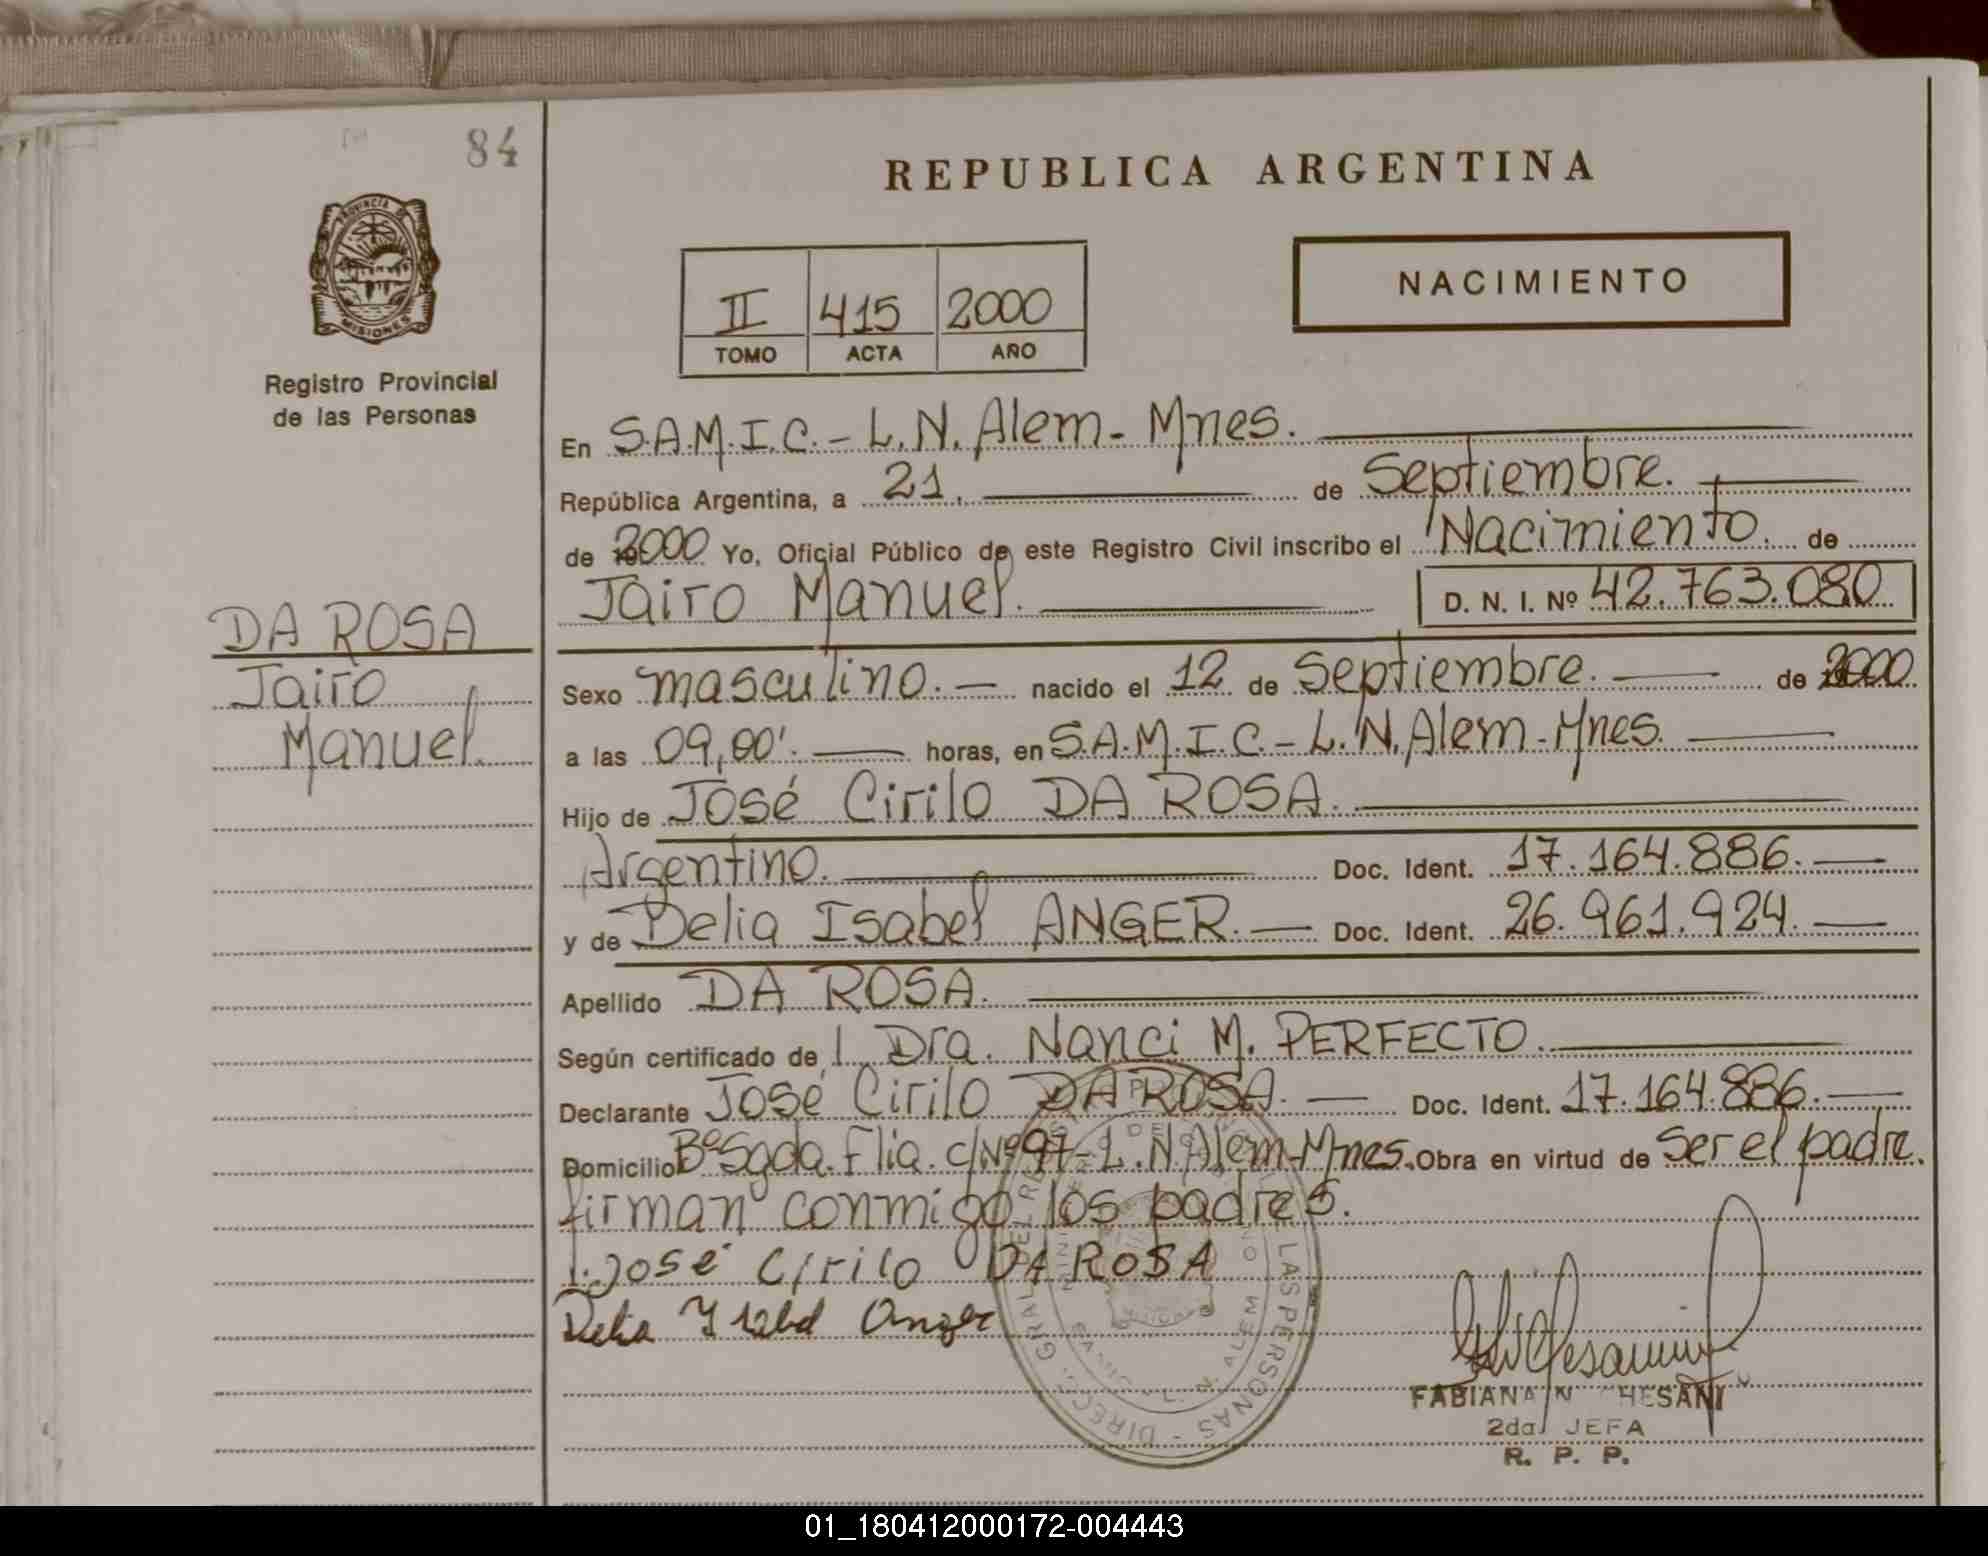 84
PROVINCIA DE
MISIONES
Registro Provincial
de las Personas
DA ROSA
Jairo
Manuel.
REPUBLICA ARGENTINA
II 415 2000
TOMO ACTA AÑO
NACIMIENTO
En S.A.M.I.C.- L.N. Alem - Mnes.
República Argentina, a 21. de Septiembre.
de 2000 Yo, Oficial Público de este Registro Civil inscribo el Nacimiento. de
Jairo Manuel. D. N. I. Nº 42.763.080
Sexo masculino. - nacido el 12 de Septiembre. de 2000
a las 09,00'. horas, en S.A.M.I.C.- L.N. Alem - Mnes.
Hijo de José Cirilo DA ROSA.
Argentino. Doc. Ident. 17.164.886.
y de Delia Isabel ANGER. Doc. Ident. 26.961.924.
Apellido DA ROSA.
Según certificado de Dra. Nanci M. PERFECTO.
Declarante José Cirilo DA ROSA. Doc. Ident. 17.164.886.
Domicilio Bº Sgda. Flia. c/Nº 97 - L.N. Alem - Mnes. Obra en virtud de ser el padre.
firman conmigo los padres.
José Cirilo DA ROSA
Delia Anger
FABIANA N CHESANI
2da JEFA
R. P. P.
LAS PERSONAS - DIREC. GRAL DEL
SAMIC - L. N. ALEM
01_180412000172-004443